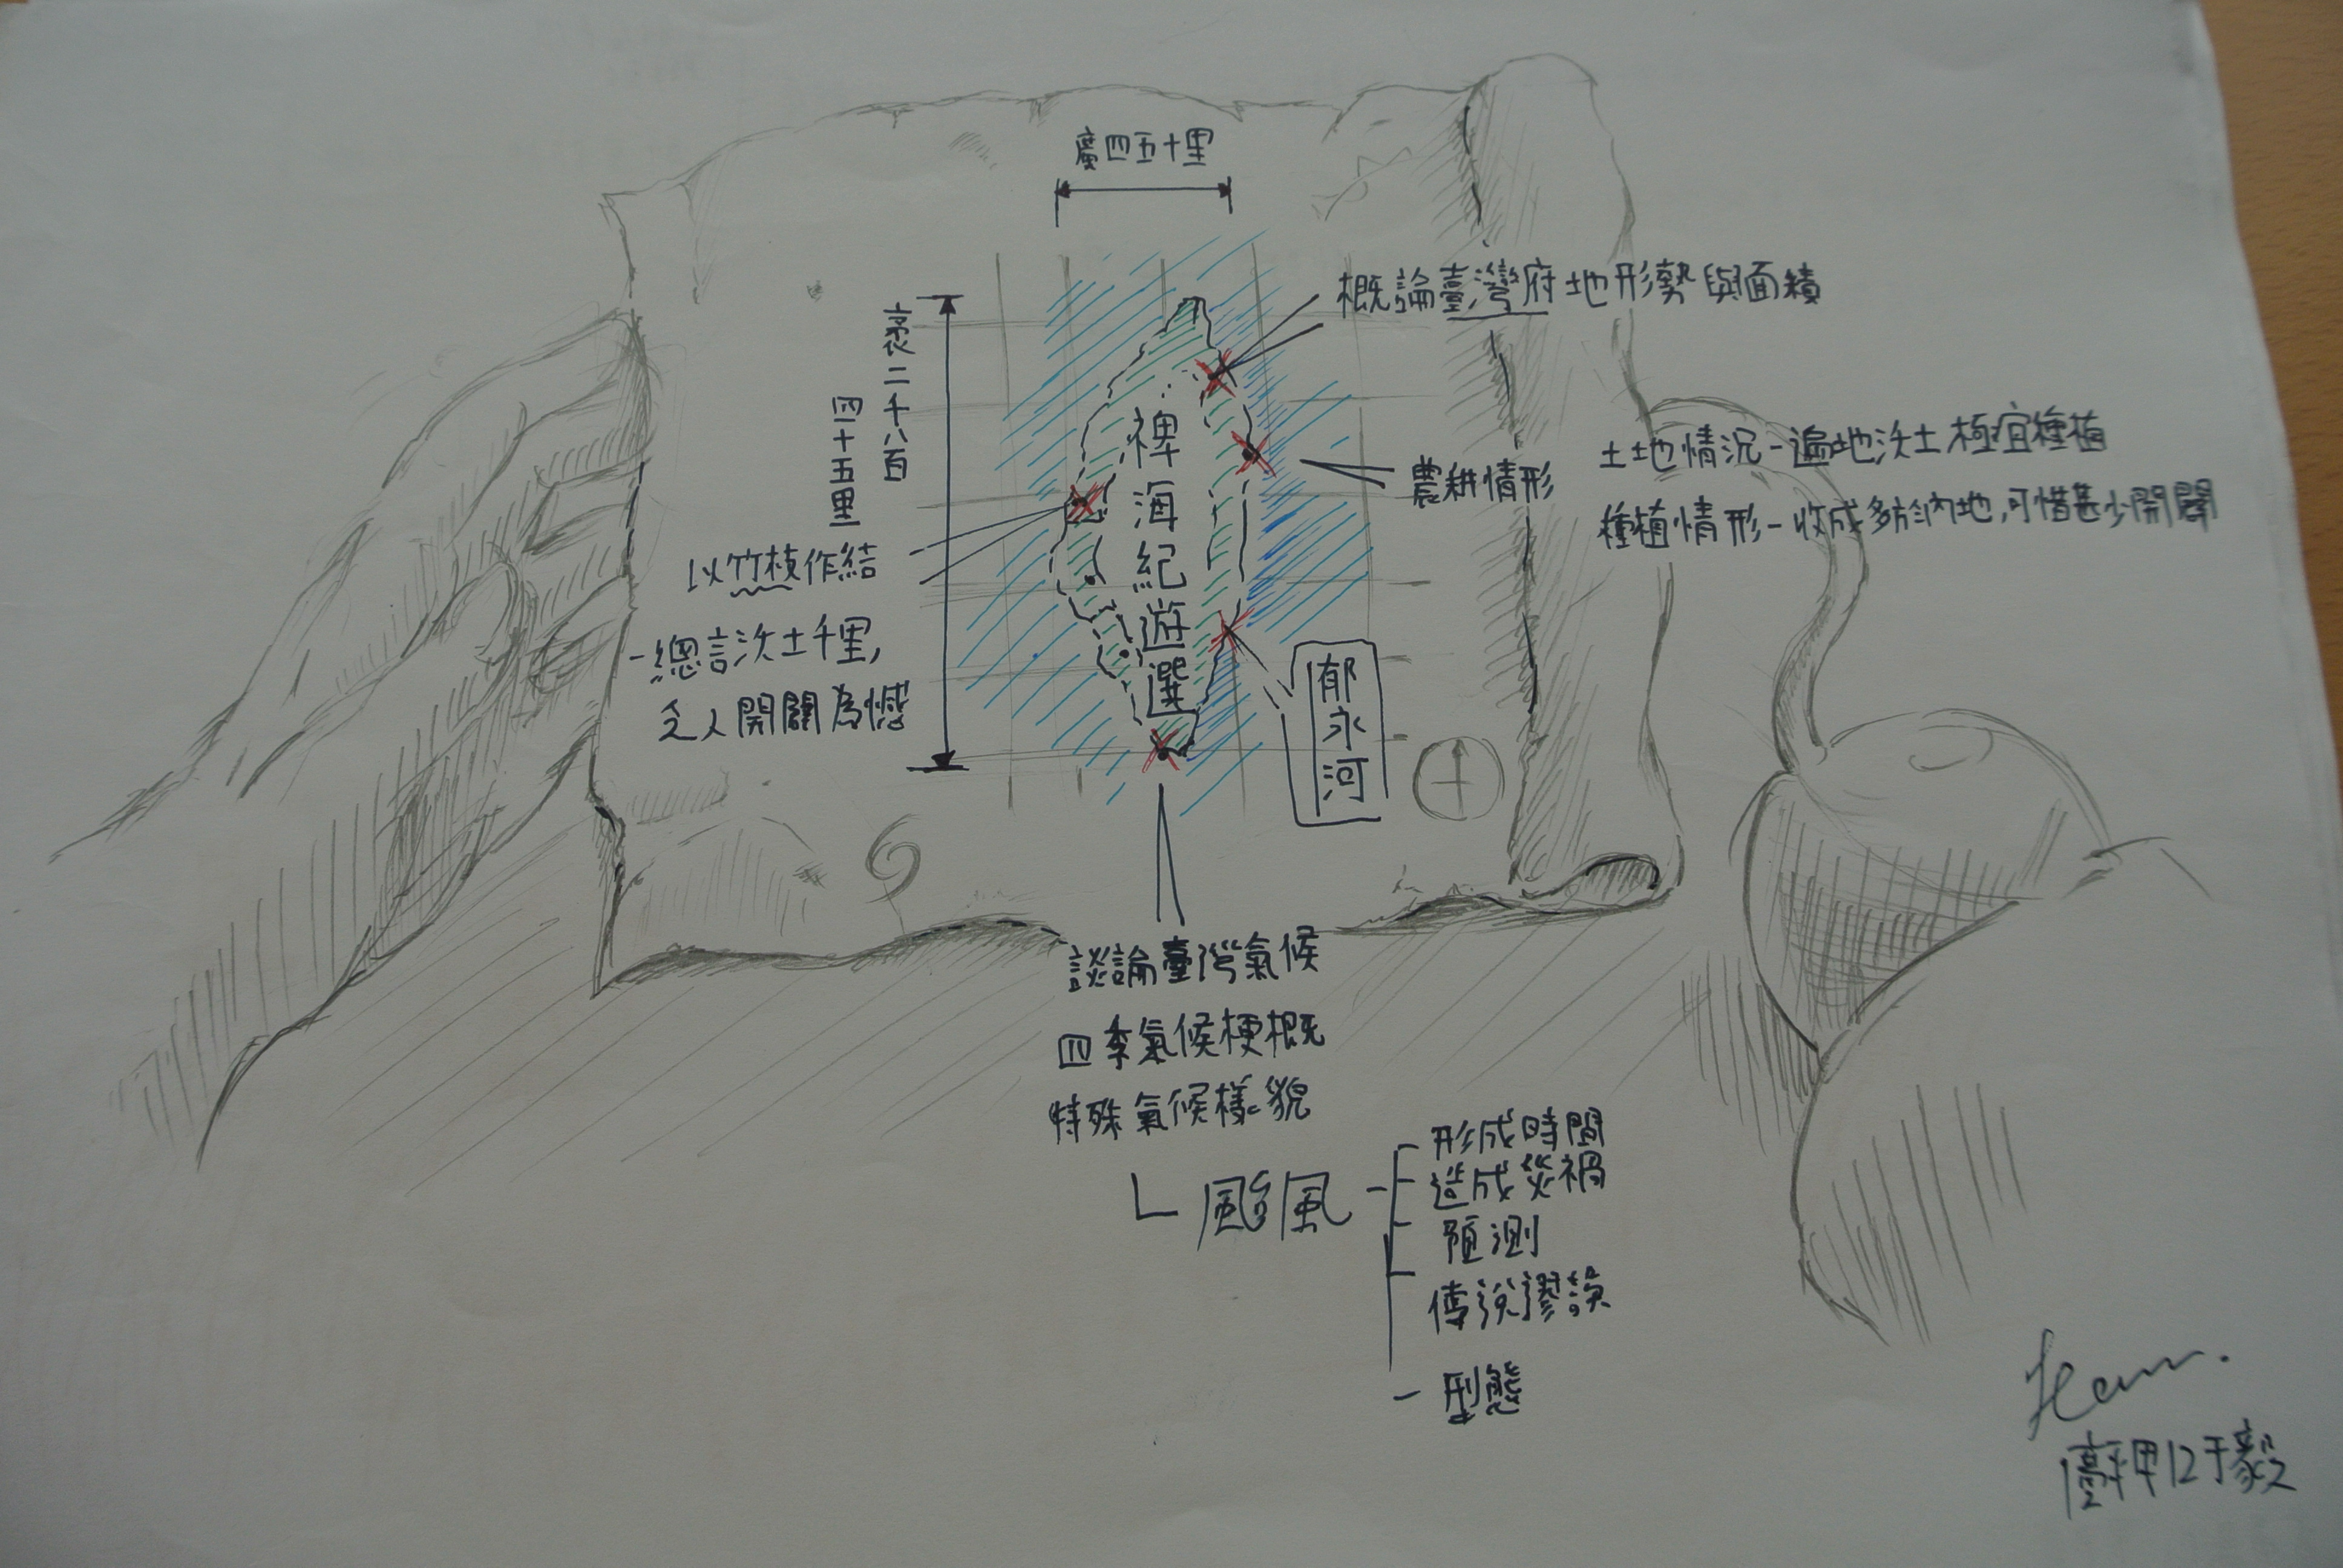 廣四五十里
袤二千八百
四十五里
裨海紀遊選
概論臺灣府地形勢與面積
農耕情形
土地情況-遍地沃土極宜種植
種植情形-收成多於內地,可惜甚少開闢
以竹枝作結
-總言沃土千里,
乏人開闢為憾
郁永河
談論臺灣氣候
四季氣候梗概
特殊氣候樣貌
颱風
形成時間
造成災禍
預測
傳說謬誤
型態